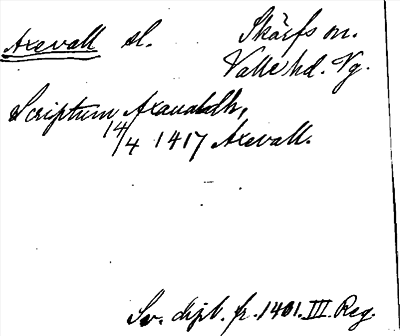 Axevall sl. Skärfs sn.
Valle hd. Vg.
Scriptum Axaualdh,
14/4 1417 Axevall.
Sv. dipl. fr. 1401. III. Reg.